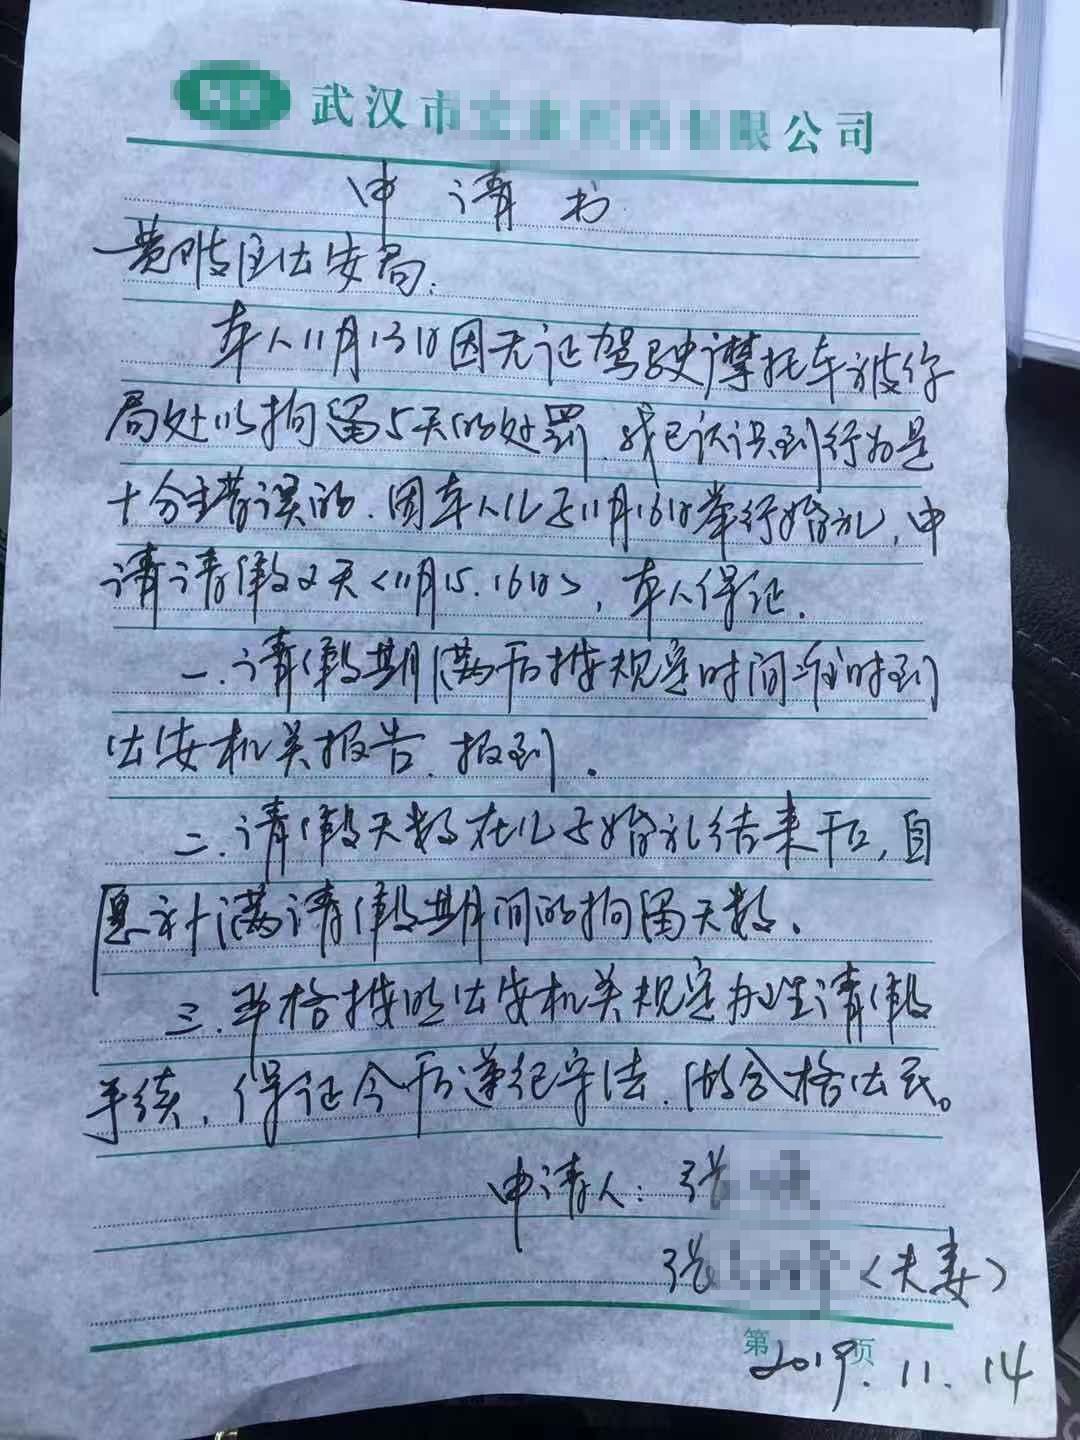 武汉市 限公司
申请书
黄陂区公安局:
本人11月13日因无证驾驶摩托车被你
局处以拘留5天的处罚.我已认识到行为是
十分错误的.因本人儿子11月16日举行婚礼,申
请请假2天<11月15.16日>,本人保证.
一.请假期满后按规定时间准时到
公安机关报告.报到.
二.请假天数在儿子婚礼结束后,自
愿补满请假期间的拘留天数.
三.严格按照公安机关规定办理请假
手续,保证今后遵纪守法.做合格公民。
申请人:张
张 (夫妻)
第 页
2019.11.14